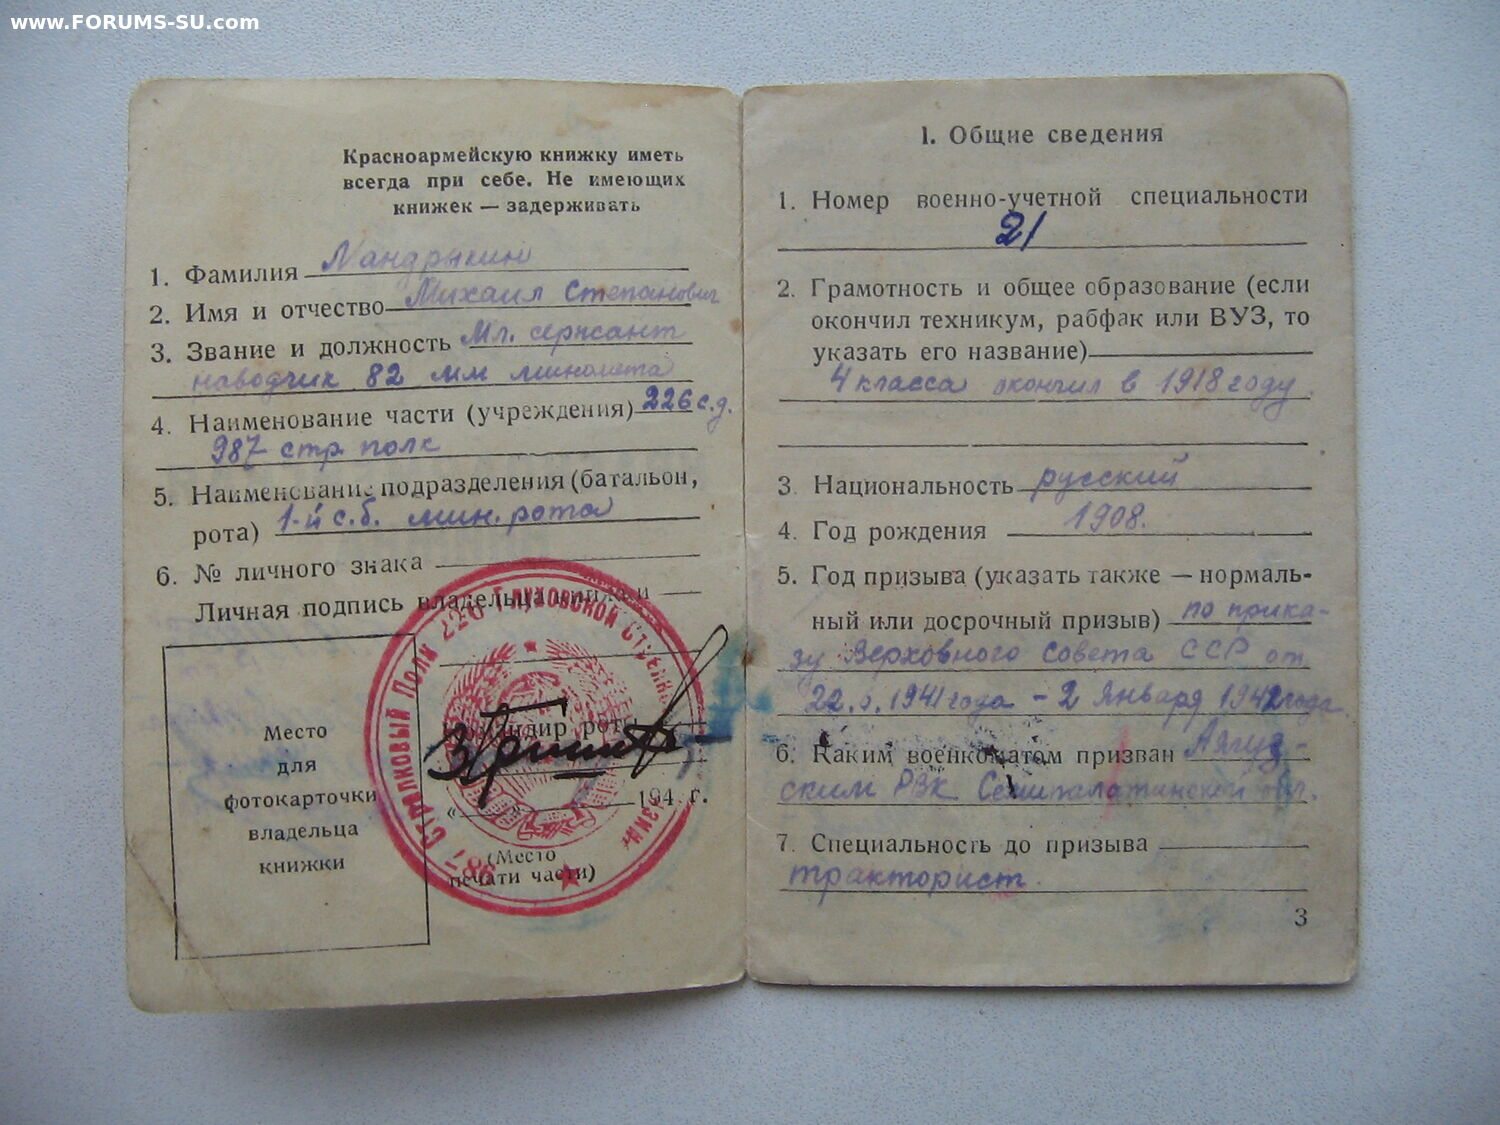 www.FORUMS-SU.com
Красноармейскую книжку иметь
всегда при себе. Не имеющих
книжек — задерживать
1. Фамилия Мандрыкин
2. Имя и отчество Михаил Степанович
3. Звание и должность Мл. сержант
наводчик 82 мм миномета
4. Наименование части (учреждения) 226 с.д.
987 стр. полк
5. Наименование подразделения (батальон,
рота) 1-й с.б. мин. рота
6. № личного знака
Личная подпись владельца книжки
987 Стрелковый Полк 226 Глуховской Стрелк. Дивизии
Командир роты
« » 194 г.
(Место
печати части)
Место
для
фотокарточки
владельца
книжки
I. Общие сведения
1. Номер военно-учетной специальности
21
2. Грамотность и общее образование (если
окончил техникум, рабфак или ВУЗ, то
указать его название)
4 класса окончил в 1918 году.
3 Национальность русский
4. Год рождения 1908.
5. Год призыва (указать также — нормаль-
ный или досрочный призыв) по прика-
зу Верховного Совета ССР от
22.6.1941 года – 2 Января 1942 года
6. Каким военкоматом призван Аягуз-
ским РВК Семипалатинской обл.
7. Специальность до призыва
тракторист.
3